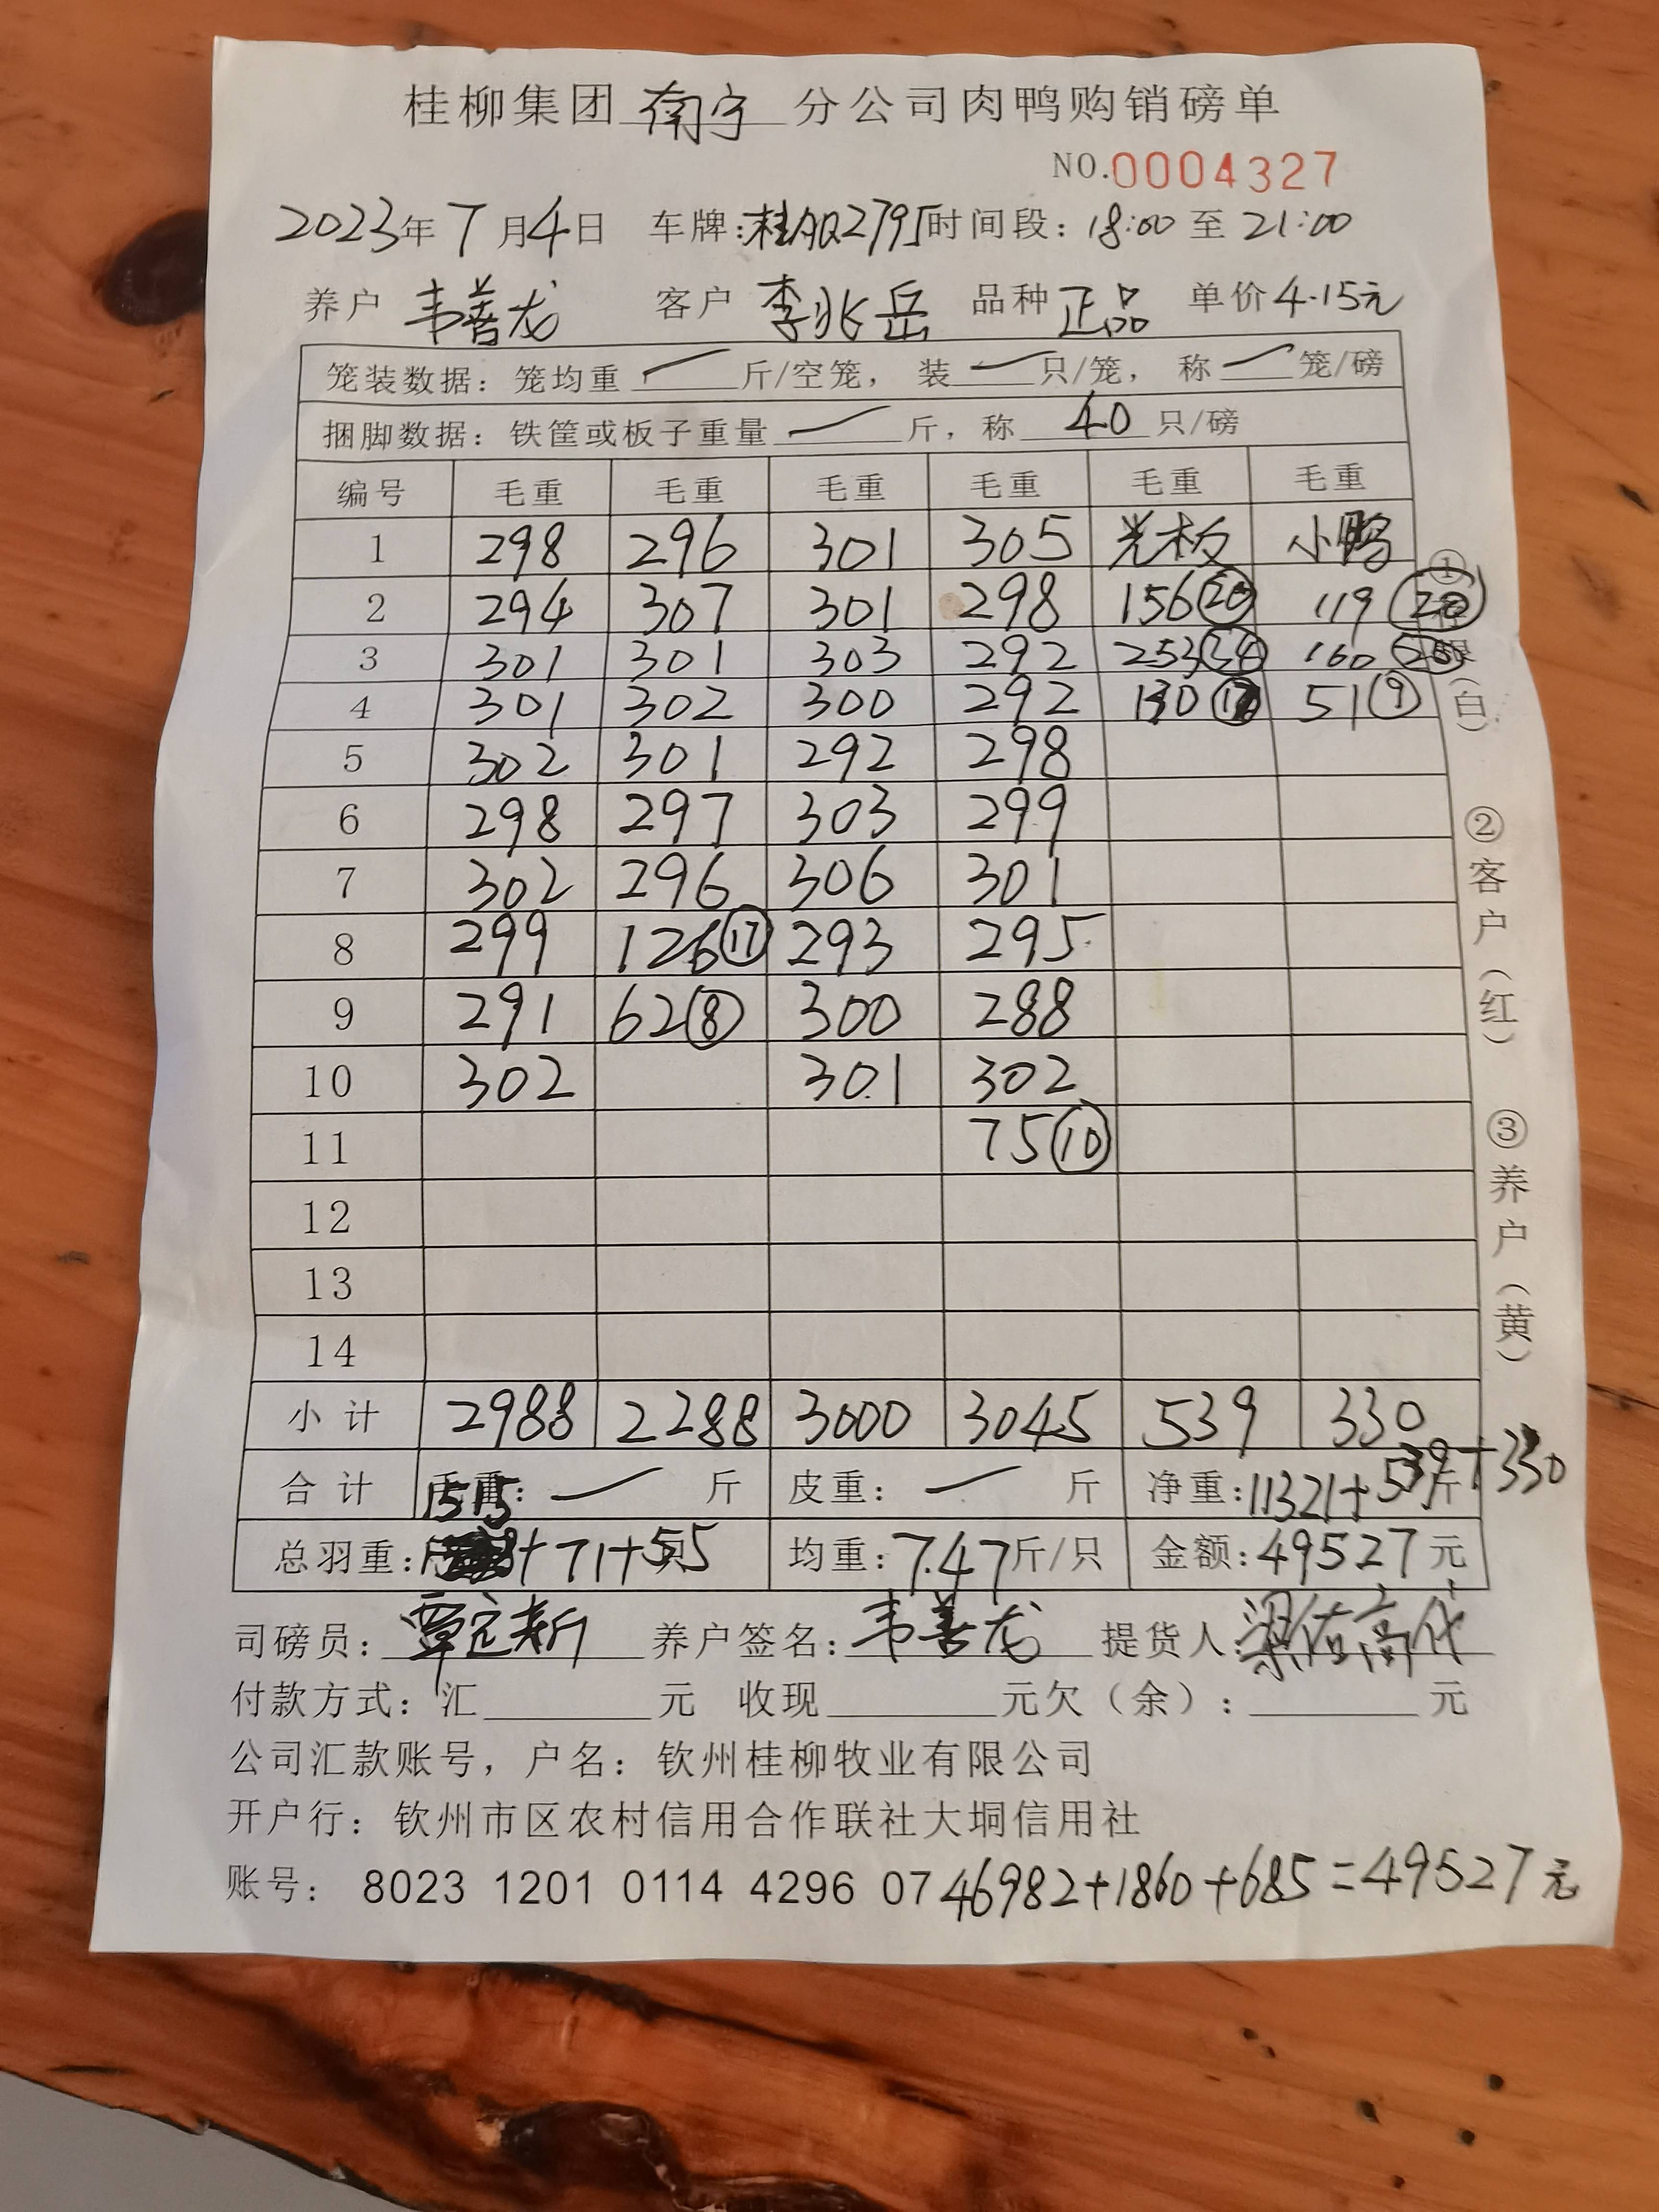 桂柳集团 南宁 分公司肉鸭购销磅单
NO.0004327
2023年 7月4日 车牌:桂AQ2795 时间段: 18:00 至 21:00
养户 韦善龙 客户 李兆岳 品种 正品 单价 4.15元
笼装数据: 笼均重 — 斤/空笼, 装 — 只/笼, 称 — 笼/磅
捆脚数据: 铁筐或板子重量 — 斤, 称 40 只/磅
编号 毛重 毛重 毛重 毛重 毛重 毛重
1 298 296 301 305 光板 小鸭
2 294 307 301 298 156⑳ 119⑳
3 301 301 303 292 253㉞ 160
4 301 302 300 292 130⑰ 51⑨
5 302 301 292 298
6 298 297 303 299
7 302 296 306 301
8 299 126⑰ 293 295
9 291 62⑧ 300 288
10 302 301 302
11 75⑩
12
13
14
小计 2988 2288 3000 3045 539 330
合计 毛重: — 斤 皮重: — 斤 净重:11321+539+330 斤
1515
总羽重: +71+55 均重:7.47斤/只 金额:49527元
司磅员: 覃定新 养户签名: 韦善龙 提货人: 梁佑高代
付款方式: 汇 元 收现 元欠(余): 元
公司汇款账号, 户名: 钦州桂柳牧业有限公司
开户行: 钦州市区农村信用合作联社大垌信用社
账号: 8023 1201 0114 4296 07 46982+1860+685=49527元
①
(白)
②客户(红)
③养户(黄)